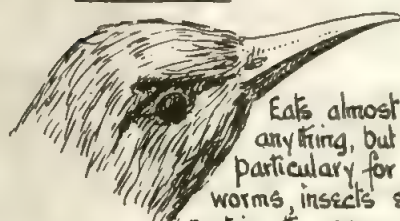 Eats almost
anything, but
particulary for
worms, insects